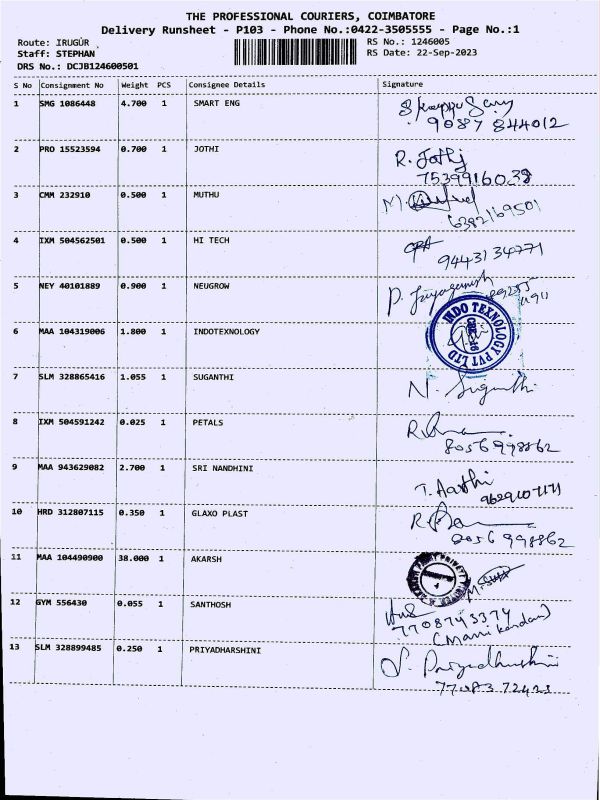 THE PROFESSIONAL COURIERS, COIMBATORE
Delivery Runsheet - P103 - Phone No.:0422-3505555 - Page No.:1
Route: IRUGUR
RS No.: 1246005
Staff: STEPHAN
RS Date: 22-Sep-2023
DRS No.: DCJB124600501
S No Consignment No Weight PCS Consignee Details Signature
1 SMG 1086448 4.700 1 SMART ENG
9087 844012
2 PRO 15523594 0.700 1 JOTHI R. Jothi
75399160 38
3 CMM 232910 0.500 1 MUTHU M.
6382169501
4 IXM 504562501 0.500 1 HI TECH
94431 34771
5 NEY 40101889 0.900 1 NEUGROW P. Jayaganesh
6 MAA 104319006 1.800 1 INDOTEXNOLOGY
INDO TEXNOLOGY PVT LTD
7 SLM 328865416 1.055 1 SUGANTHI N. Suganthi
8 IXM 504591242 0.025 1 PETALS
8056998862
9 MAA 943629082 2.700 1 SRI NANDHINI
T. Aarthi
9629107171
10 HRD 312807115 0.350 1 GLAXO PLAST
8056 998862
11 MAA 104490900 38.000 1 AKARSH
12 GYM 556430 0.055 1 SANTHOSH
7708743374
(Mani kandan)
13 SLM 328899485 0.250 1 PRIYADHARSHINI